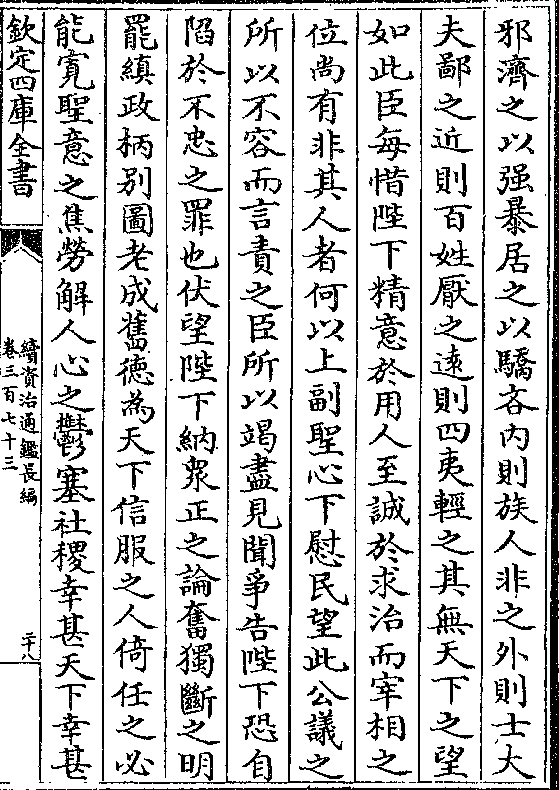 邪濟之以强暴居之以驕吝内則族人非之外則士大
夫鄙之近則百姓厭之遠則四夷輕之其無天下之望
如此臣每惜陛下精意於用人至誠於求治而宰相之
位尚有非其人者何以上副聖心下慰民望此公議之
所以不容而言責之臣所以竭盡見聞爭告陛下恐自
陷於不忠之罪也伏望陛下納衆正之論奮獨斷之明
罷縝政柄别圖老成舊德為天下信服之人倚任之必
能寛聖意之焦勞解人心之鬱塞社稷幸甚天下幸甚
欽定四庫全書
續資治通鑑長編
卷三百七十三
二十八